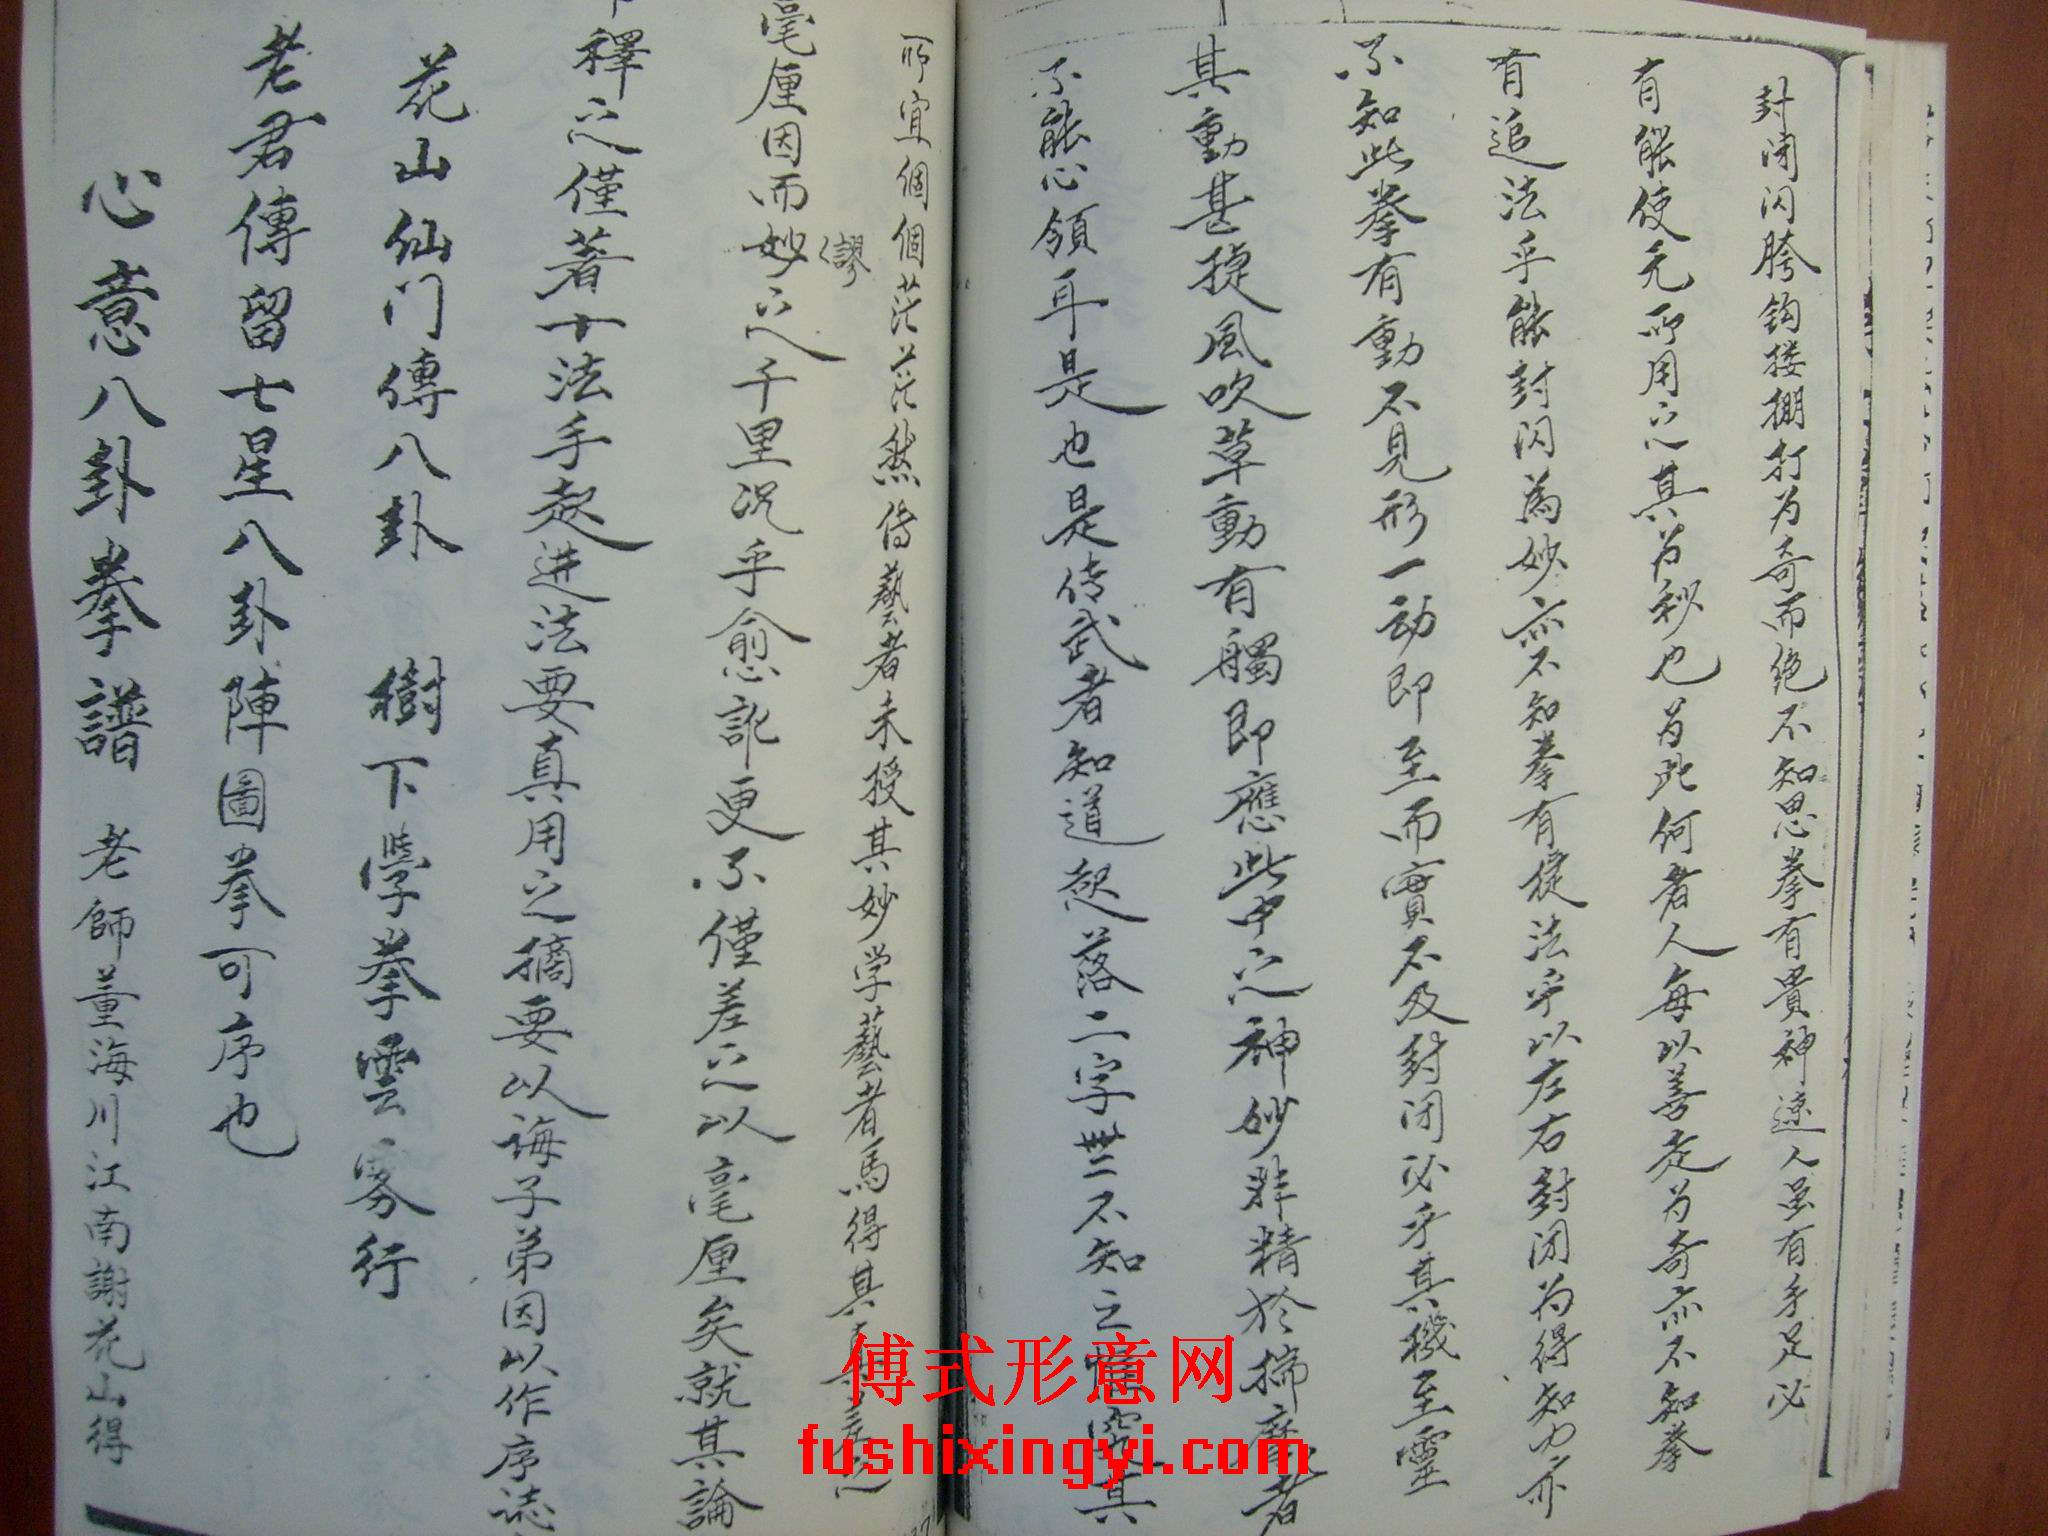 封闭闪胯鈎搂掤打为奇而绝不知思拳有貴神速人虽有手足必
有能使无所用之其为秒也为此何者人每以善走为奇亦不知拳
有追法乎能封闪為妙亦不知拳有捷法乎以左右封闭为得知力亦
不知此拳有動不見形一动即至而實不及封闭必乎其機至靈
其動甚捷風吹草動有觸即應此中之神妙非精於揣摩者
不能心領耳是也是传武者知道起落二字世不知之舊窔其
所宜個個茫茫然傳藝者未授其妙学藝者馬得其真差之
毫厘因而妙之千里况乎愈訛更不僅差之以毫厘矣就其論
謬
釋之僅著十法手起进法要真用之摘要以诲子弟因以作序誌
花山仙门傳八卦 樹下学拳雲雾行
老君傳留七星八卦陣圖拳可序也
心意八卦拳譜 老師董海川江南謝花山得
37
傅式形意网
fushixingyi.com